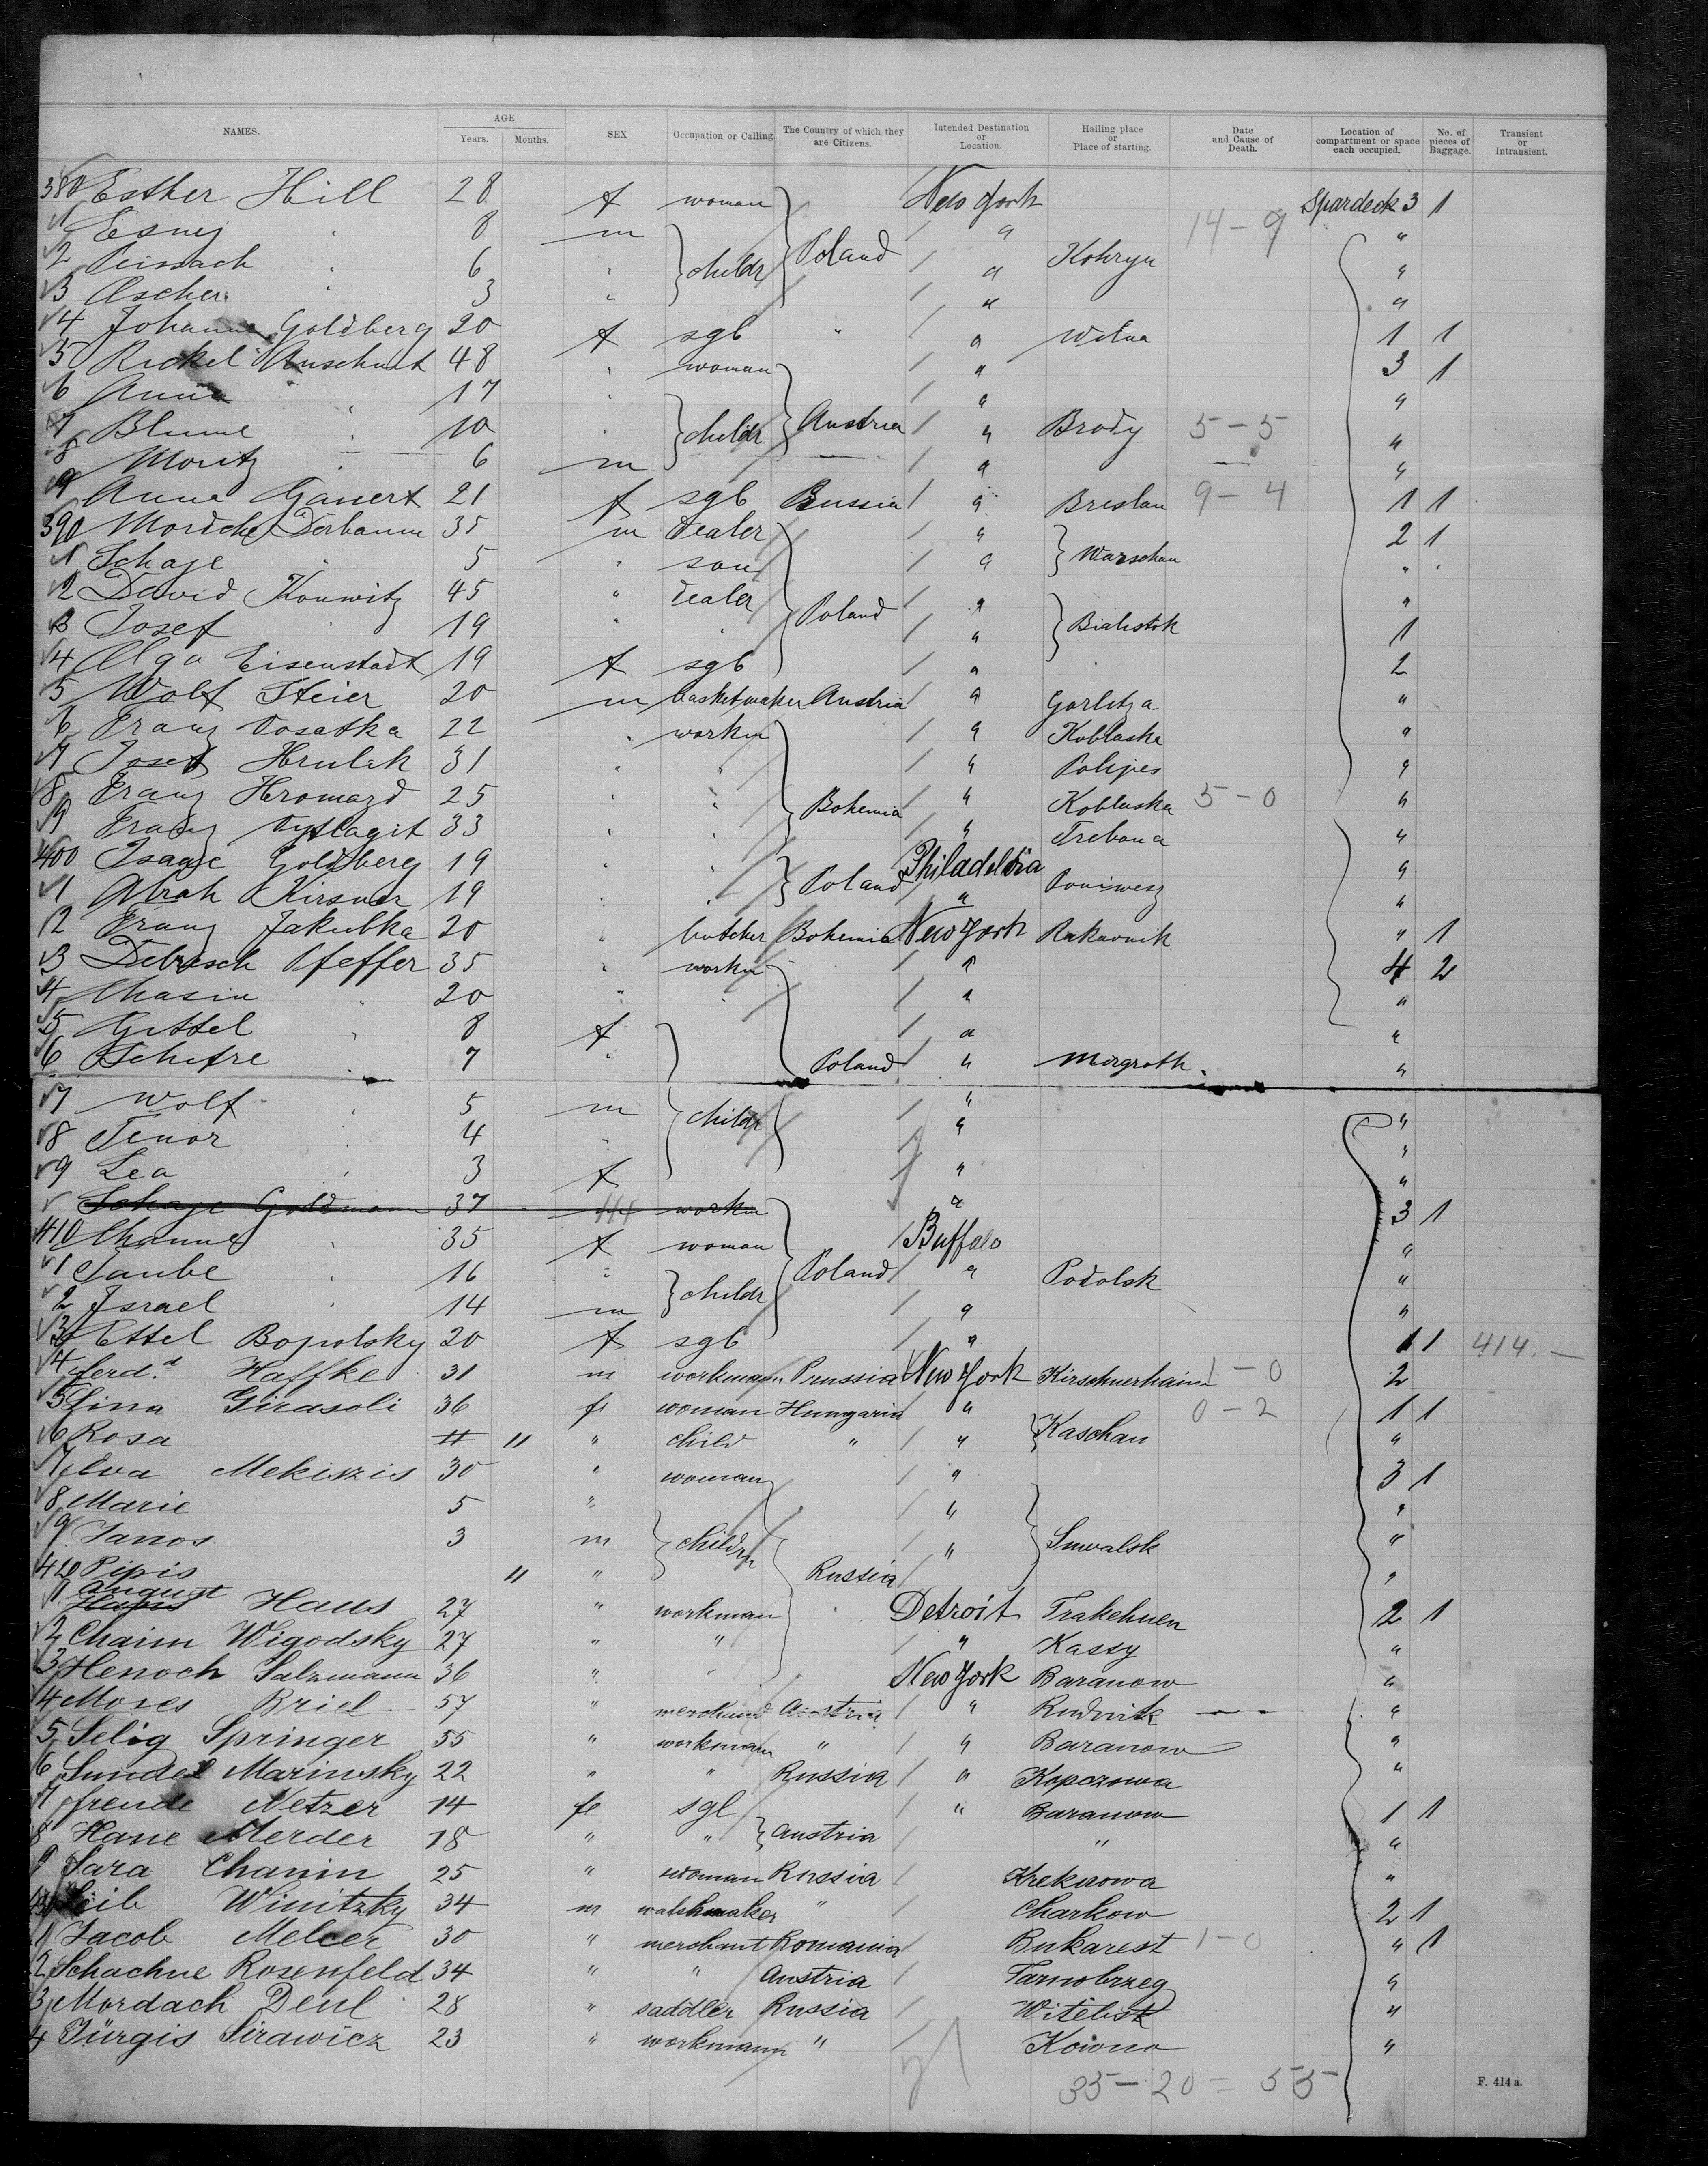 NAMES. AGE Years. Months. SEX Occupation or Calling. The Country of which they are Citizens. Intended Destination or Location. Hailing place or Place of starting. Date and Cause of Death. Location of compartment or space each occupied. No. of pieces of Baggage. Transient or Intransient.
380 Esther Hill 28 f woman New York Spardeck 3 1
1 Esnej " 8 m " 14-9 "
2 Peissach " 6 " childr Poland " Kohryn "
3 Ascher " 3 " " "
4 Johanna Goldberg 20 f sgl " " Wilna 1 1
5 Rickel Anschuit 48 " woman " 3 1
6 Anna " 17 " " "
7 Blume " 10 " childr Austria " Brody 5-5 "
8 Moritz " 6 m " "
9 Anna Ganert 21 f sgl Russia " Breslau 9-4 1 1
390 Mordche Dorbaum 35 m dealer " 2 1
1 Schaje " 5 " son " Warschau " "
2 David Konwitz 45 " dealer " "
3 Josef " 19 " " Poland " Bialistok 1
4 Olga Eisenstadt 19 f sgl " 2
5 Wolf Steier 20 m basketmaker Austria " Gorlitza "
6 Franz Vosatka 22 " workm " Koblaska "
7 Josef Hrulik 31 " " " Polipes "
8 Franz Hromazd 25 " " Bohemia " Koblaska 5-0 "
9 Franz 33 " " " Trebona "
400 Isaac Goldberg 19 " " Philadelbia "
1 Abrah Kirsner 19 " " Poland " Poniwesz "
2 Franz Jakubka 20 " butcher Bohemia New York Rakovnik " 1
3 Debresch Pfeffer 35 " workm " 4 2
4 Chasin " 20 " " " "
5 Gittel " 8 f " "
6 Schifre " 7 " Poland " Morgroth "
7 Wolf " 5 m childr " "
8 Tenor " 4 " " "
9 Lea " 3 f " "
Schaje Goldmann 37 m workm " 3 1
410 Channe " 35 f woman Buffalo "
1 Taube " 16 " Poland " Podolsk "
2 Israel " 14 m childr " "
3 Ettel Bopolsky 20 f sgl " 1 1 414.—
4 Ferd.d Haffke 31 m workmann Prussia New York Kirschnerhaim 1-0 2
5 Lina Girasoli 36 fe woman Hungaria " 0-2 1 1
6 Rosa 11 " child " " Kaschau "
7 Eva Mekiszis 30 " woman " 3 1
8 Marie 5 " " "
9 Janos 3 m childrn " Suwalsk "
420 Pipis 11 " Russia "
1 August Haus 27 " workman Detroit Trakehnen 2 1
2 Chaim Wigodsky 27 " " " Kassy "
3 Henoch Salzmann 36 " " New York Baranow "
4 Moses Bried 57 " merchand Austria " Rudnik "
5 Selig Springer 55 " workmann " " Baranow "
6 Sundel Marinsky 22 " " Russia " Kopczowa "
7 freude Netzer 14 fe sgl " Baranow 1 1
8 Hane Merder 18 " " Austria " "
9 Sara Chanin 25 " woman Russia Kreknowa "
430 Leib Winitzky 34 m watchmaker " Charkow 2 1
1 Jacob Melcer 30 " merchant Romania Bukarest 1-0 " 1
2 Schachne Rosenfeld 34 " " Austria Tarnobrzeg "
3 Mordach Deul 28 " saddler Russia Witebsk "
4 Jürgis Sirawicz 23 " workmann " Kowno "
35-20=55
F. 414a.